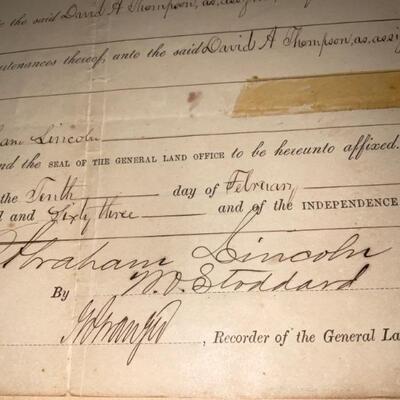 to the said David A Thompson, as, assign
tenances thereof, unto the said David A Thompson, as, assig
ham Lincoln
nd the SEAL OF THE GENERAL LAND OFFICE to be hereunto affixed.
the Tenth day of February
d and Sixty three and of the INDEPENDENCE
Abraham Lincoln
By W. O. Stoddard
, Recorder of the General La